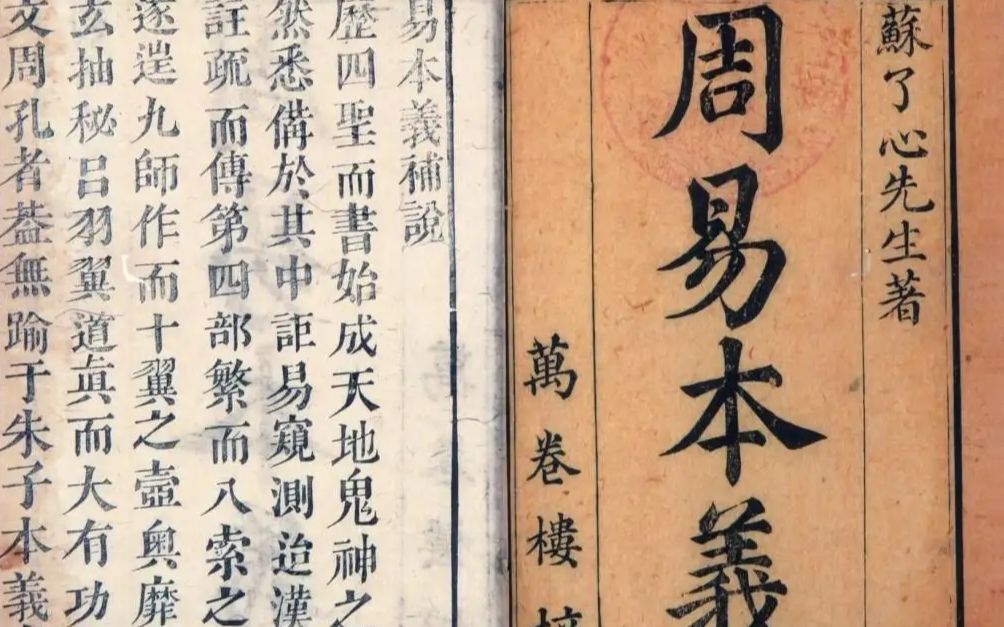 蘇了心先生著
周易本義
萬卷樓
易本義補説
歷四聖而書始成天地鬼神之
然悉備於其中詎易窺測迨漢
註疏而傳第四部繁而八索之
遂逞九師作而十翼之壼奧靡
玄抽秘呂羽翼道眞而大有功
文周孔者葢無踰于朱子本義